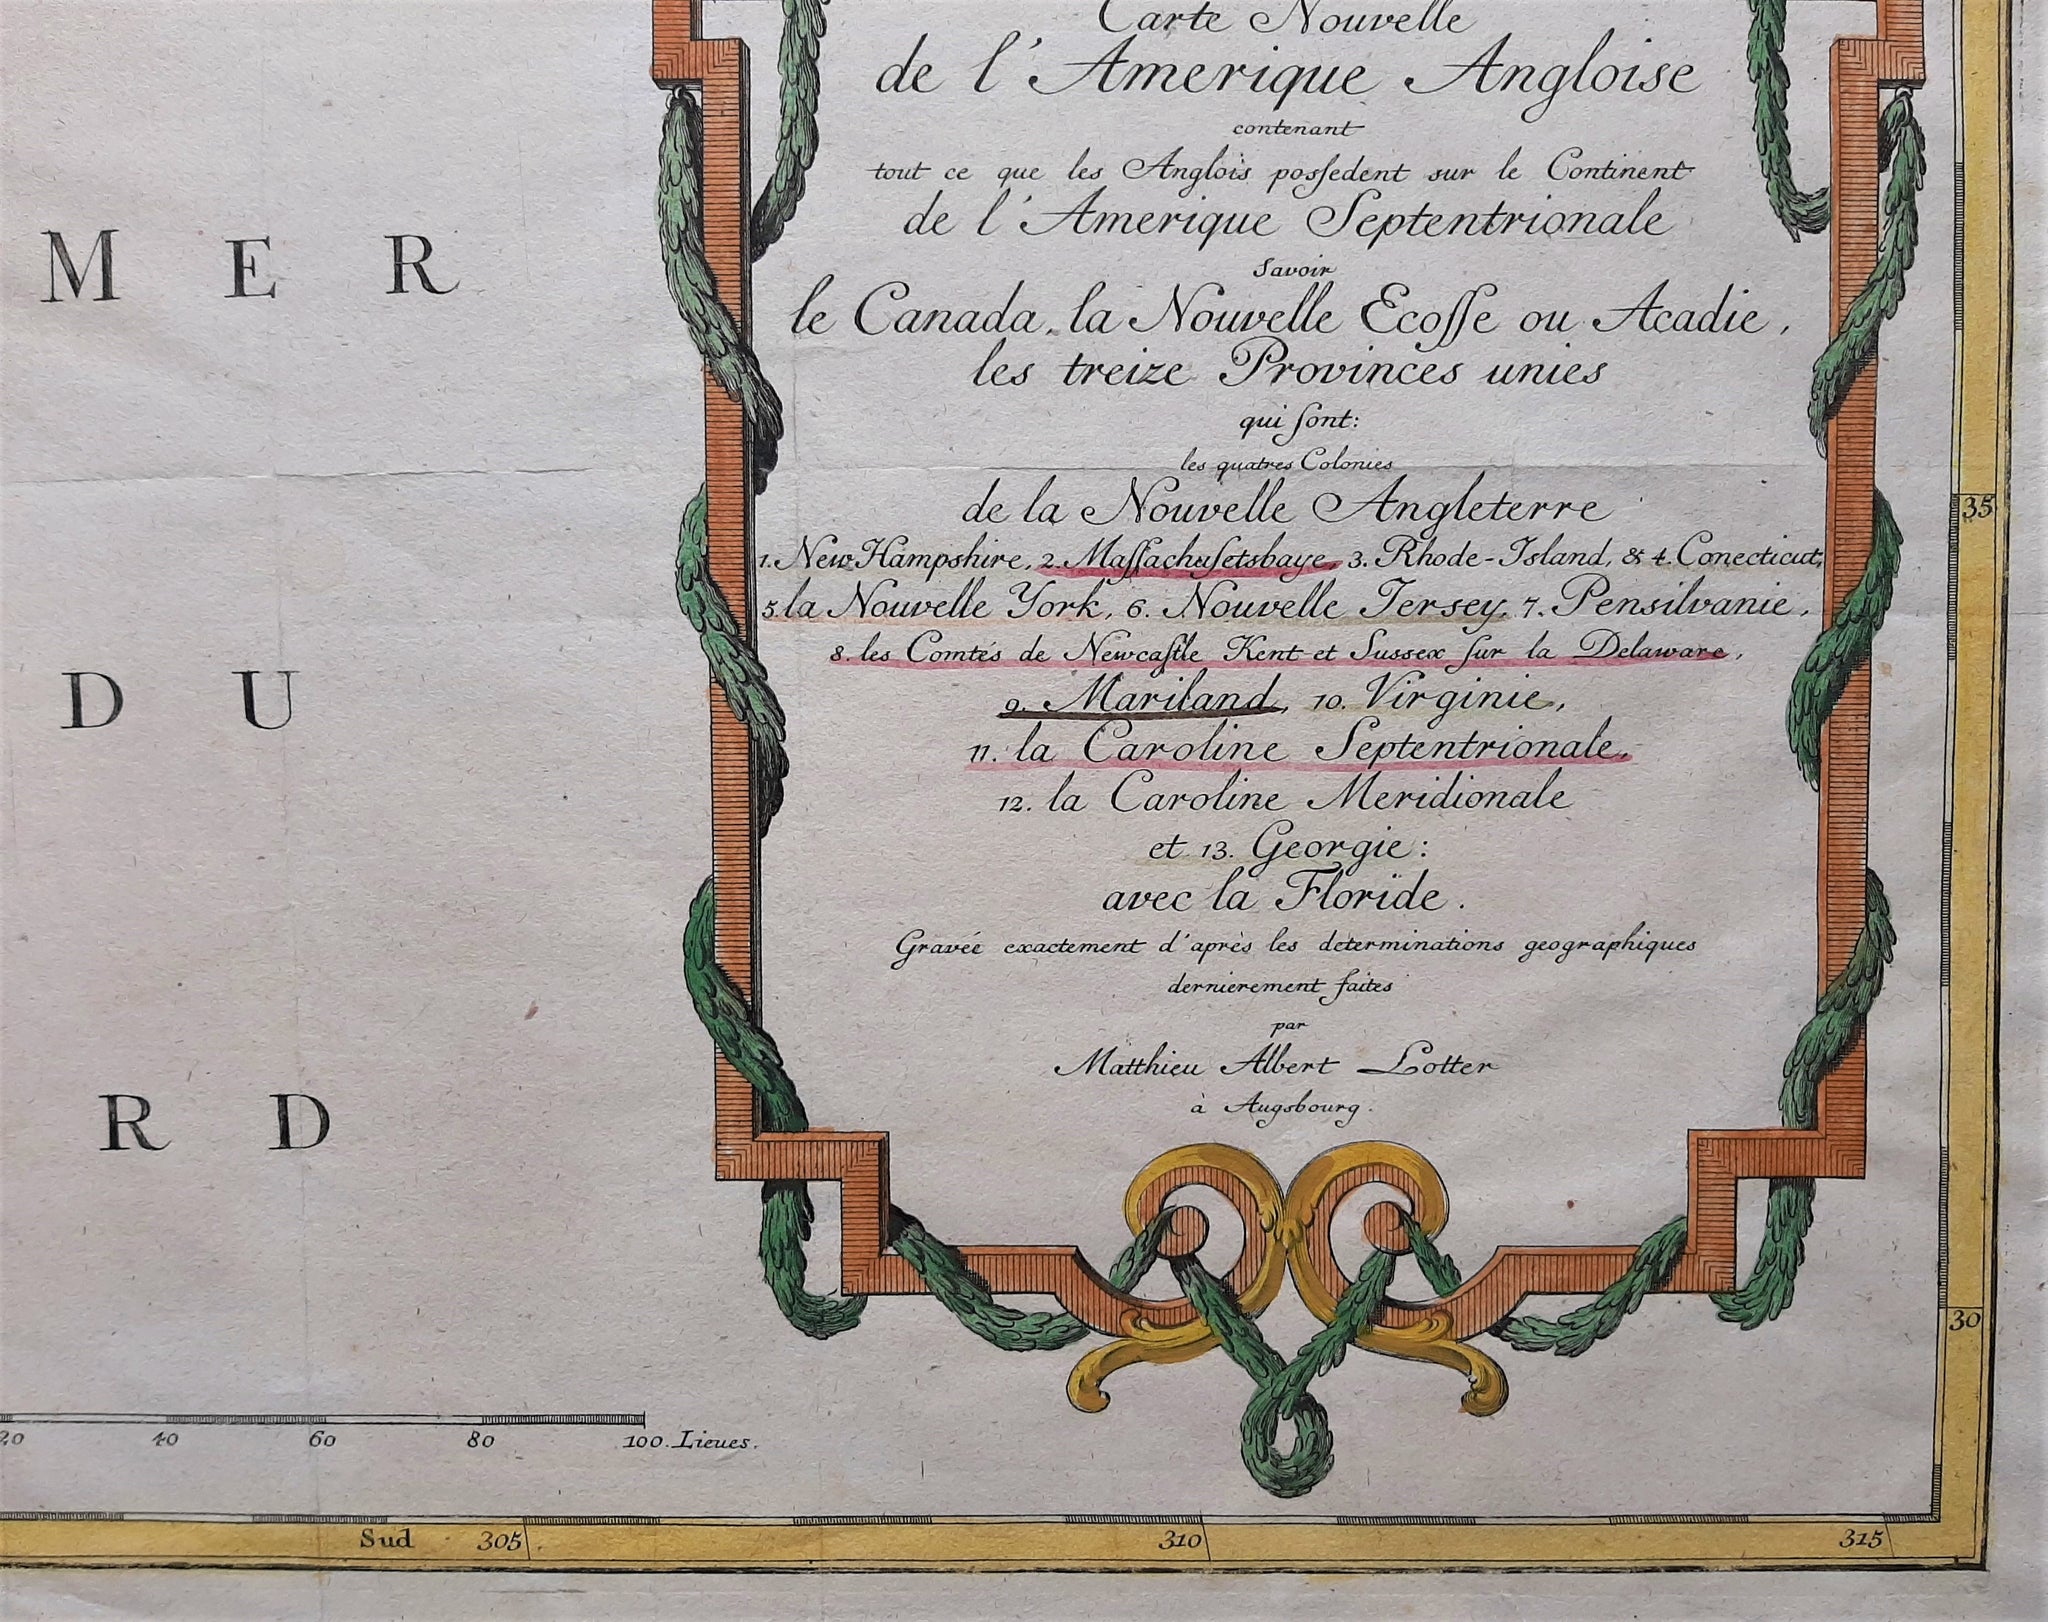 Carte Nouvelle
de l'Amerique Angloise
contenant
tout ce que les Anglois posſedent sur le Continent
de l'Amerique Septentrionale
Savoir
le Canada, la Nouvelle Ecoſſe ou Acadie,
les treize Provinces unies
qui ſont:
les quatres Colonies
de la Nouvelle Angleterre
1. New Hampshire, 2. Maſſachuſetsbaye, 3. Rhode-Island, & 4. Conecticut,
5. la Nouvelle York, 6. Nouvelle Jersey, 7. Pensilvanie,
8. les Comtés de Newcaſtle Kent et Sussex ſur la Delaware,
9. Mariland, 10. Virginie,
11. la Caroline Septentrionale,
12. la Caroline Meridionale
et 13. Georgie:
avec la Floride.
Gravée exactement d'après les determinations geographiques
dernierement faites
par
Matthieu Albert Lotter
à Augsbourg.
MER
DU
RD
35
30
20 40 60 80 100. Lieues.
Sud 305 310 315